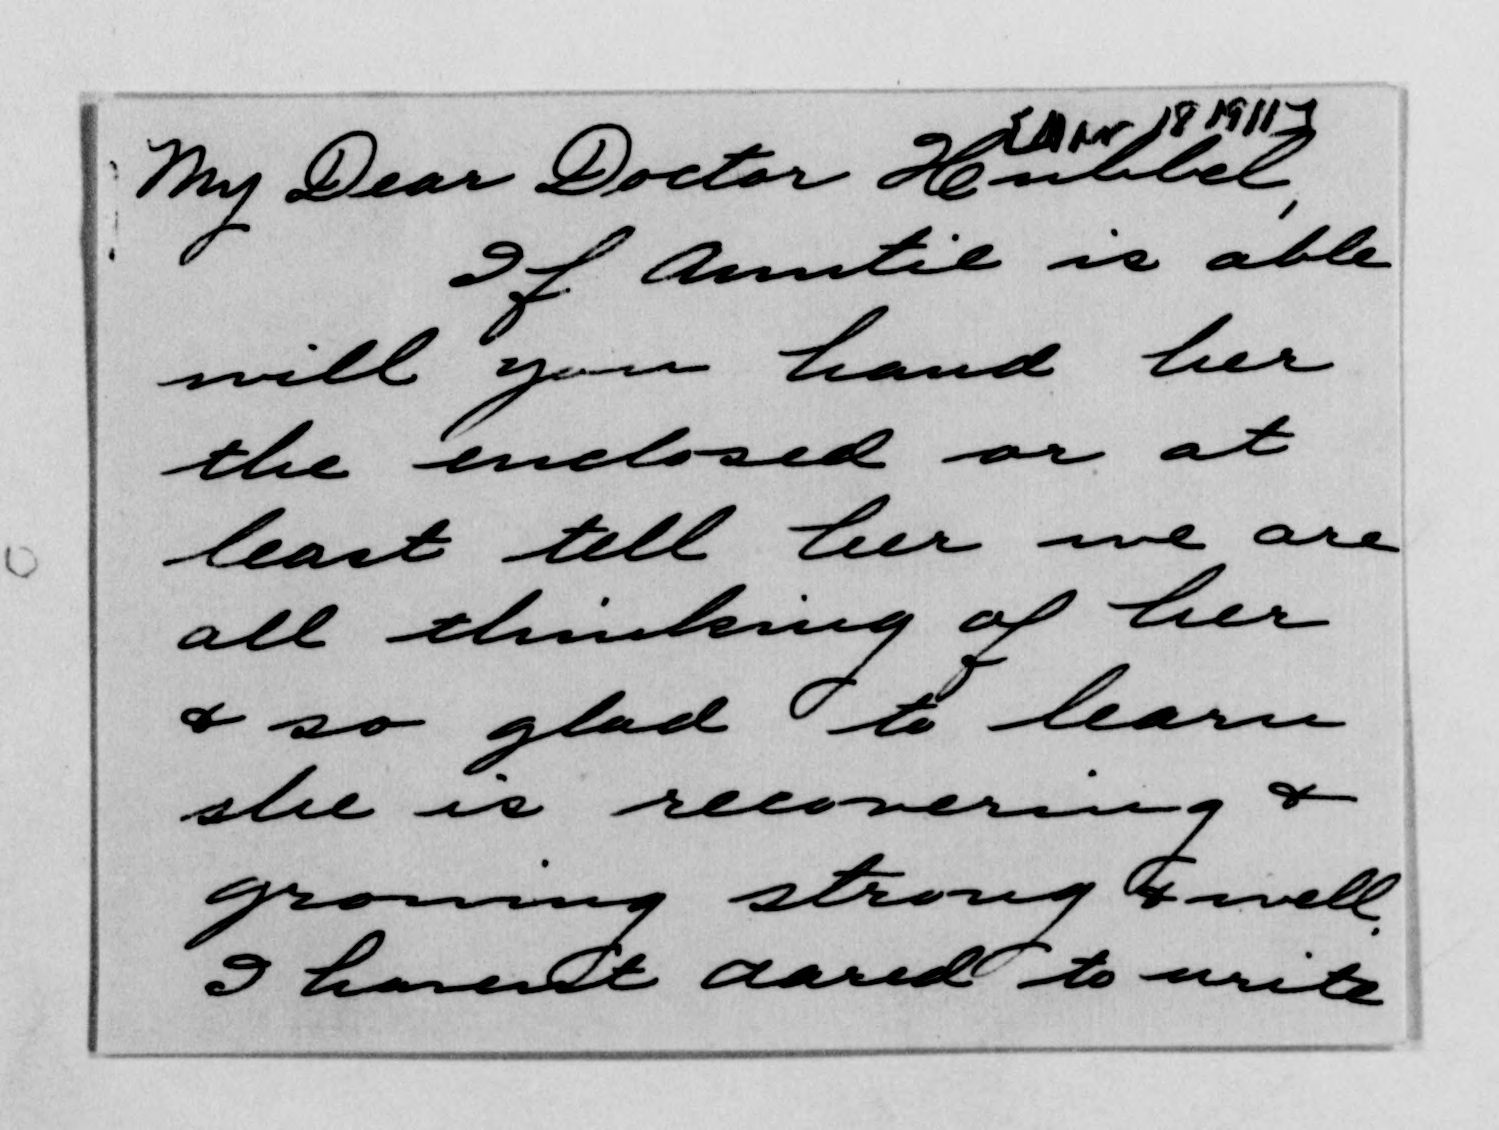 [Mar 18 1911]
My Dear Doctor Hubbel,
If Auntie is able
will you hand her
the enclosed or at
least tell her we are
all thinking of her
& so glad to learn
she is recovering &
growing strong & well.
I haven't dared to write